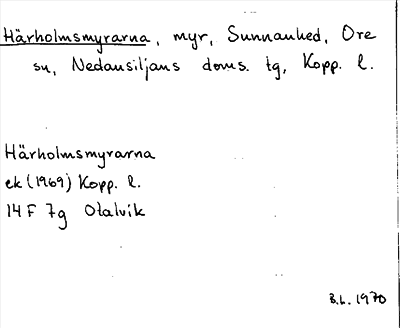 Härholmsmyrarna, myr, Sunnanhed, Ore
sn, Nedansiljans doms. tg, Kopp. l.
Härholmsmyrarna
ek (1969) Kopp. l.
14 F 7g Otalvik
3.6. 1970